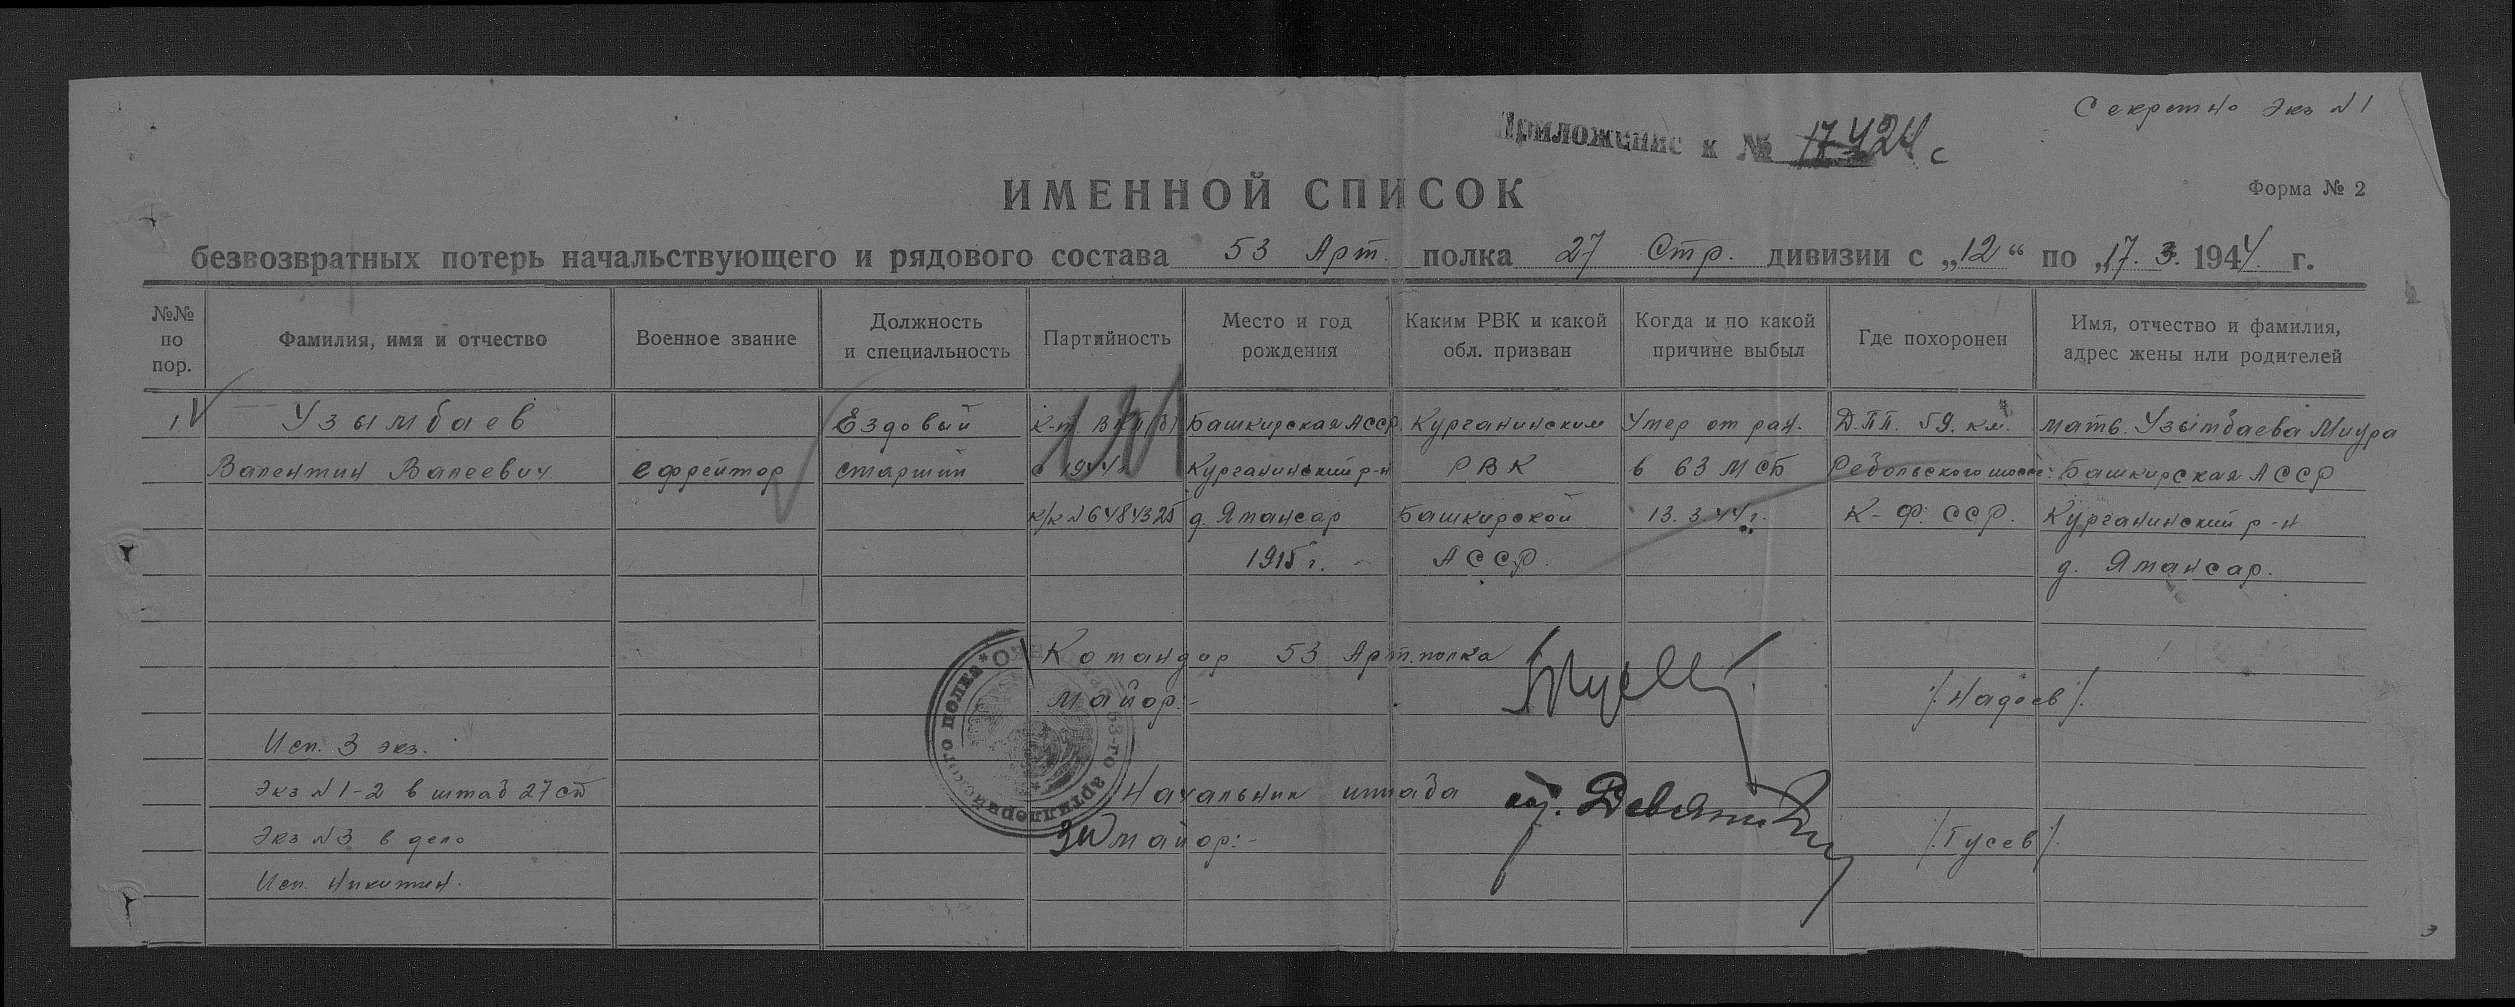 Секретно Экз N 1
Приложение к № 17424 с
ИМЕННОЙ СПИСОК
Форма № 2
безвозвратных потерь начальствующего и рядового состава 53 Арт. полка 27 Стр. дивизии с „12“ по „17. 3. 1944 г.
№№ по пор.
Фамилия, имя и отчество
Военное звание
Должность и специальность
Партийность
Место и год рождения
Каким РВК и какой обл. призван
Когда и по какой причине выбыл
Где похоронен
Имя, отчество и фамилия, адрес жены или родителей
1 Узымбаев Ездовый К-т ВКП(б) Башкирская АССР Курганинским Умер от ран. Д.П.П. 59. км. мать. Узымбаева Миура
Валентин Валеевич ефрейтор старший с 1944г Курганинский р-н РВК в 63 МСБ Ребольского шоссе: Башкирская АССР
к/к N 6484325 д. Ямансар Башкирской 13. 3. 44 г. К-Ф. ССР. Курганинский р-н
1915 г. - АССР. д. Ямансар.
Командир 53 Арт. полка
майор: - /Надоев/.
Исп. 3 экз.
Экз N 1-2 в штаб 27 сд Начальник штаба
Экз N 3 в дело майор: - /Гусев/.
Исп. Никитин.
53-го артиллерийского полка